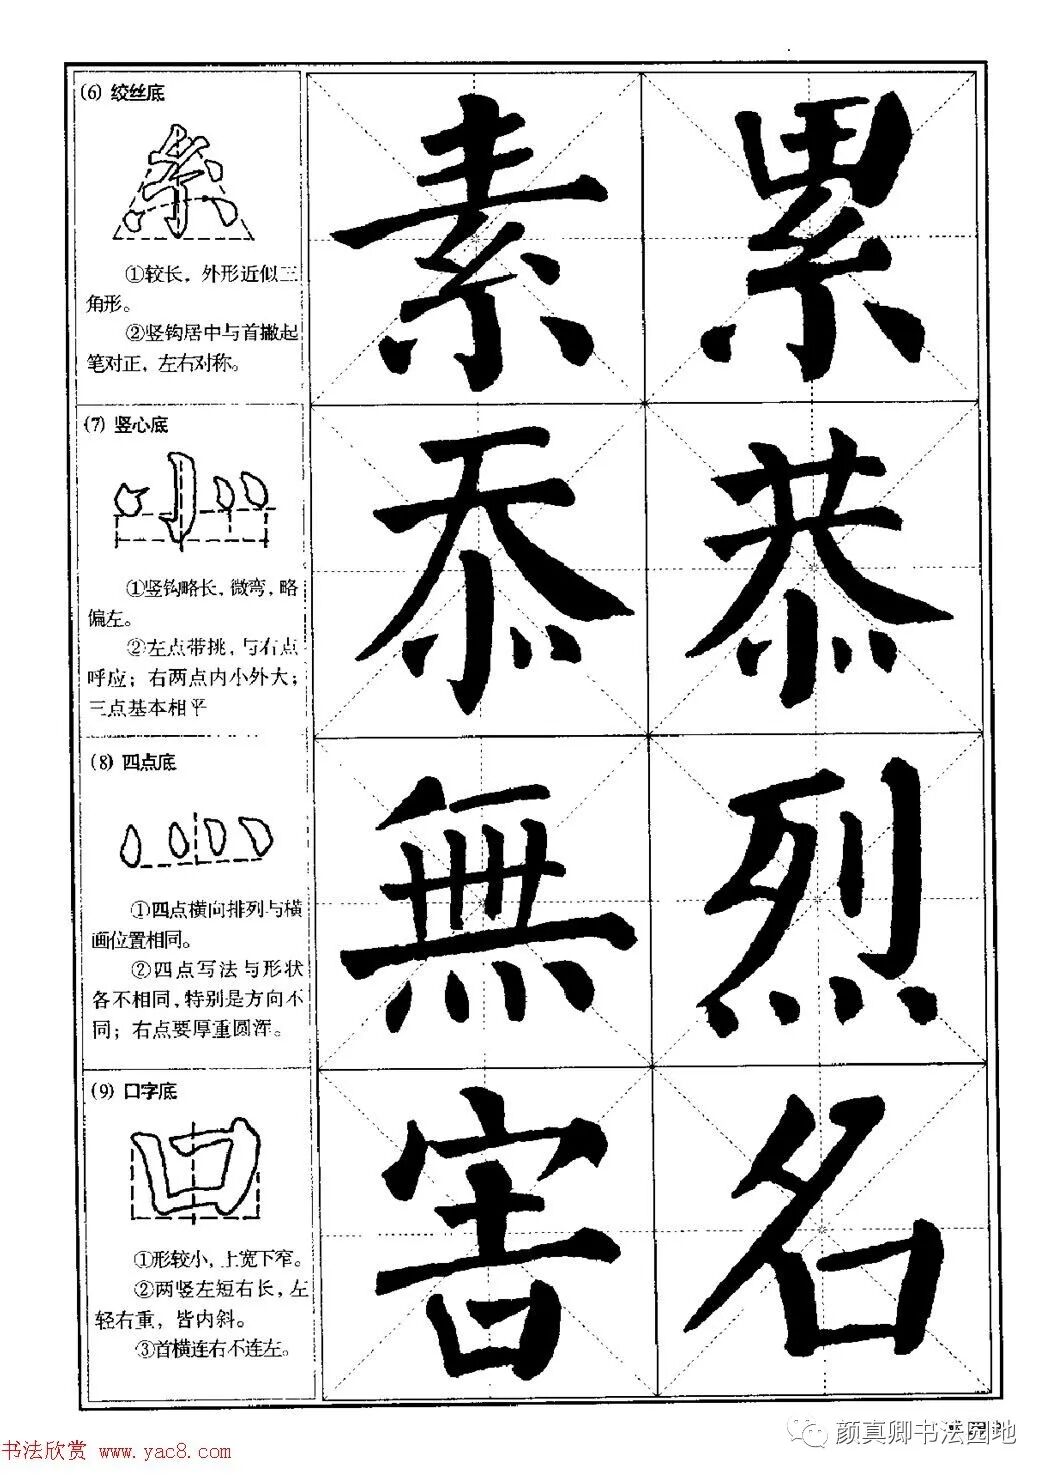 (6) 绞丝底
①较长，外形近似三
角形。
②竖钩居中与首撇起
笔对正，左右对称。
素 累
(7) 竖心底
①竖钩略长，微弯，略
偏左。
②左点带挑，与右点
呼应；右两点内小外大；
三点基本相平
忝 恭
(8) 四点底
①四点横向排列与横
画位置相同。
②四点写法与形状
各不相同，特别是方向不
同；右点要厚重圆浑。
無 烈
(9) 口字底
①形较小，上宽下窄。
②两竖左短右长，左
轻右重，皆内斜。
③首横连右不连左。
害 名
书法欣赏 www.yac8.com
颜真卿书法园地